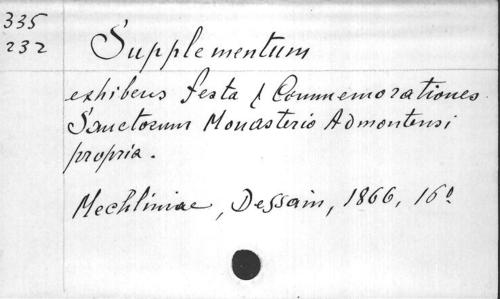 335
232
Supplementum
exhibens festa & Commemorationes
Sanctorum Monasterio Admontensi
propria.
Mechliniae, Dessain, 1866, 16º